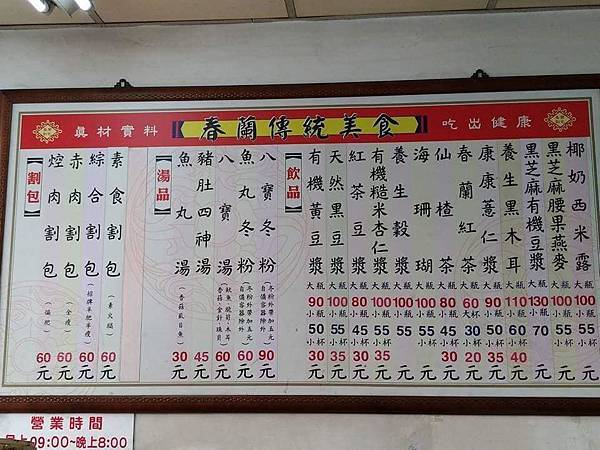 真材實料 【春蘭傳統美食】 吃出健康
【割包】
焢肉割包（偏肥）60元
赤肉割包（全瘦）60元
綜合割包（招牌半肥半瘦）60元
素食割包（素火腿）60元
【湯品】
魚丸湯（香菇虱目魚）30元
豬肚四神湯 45元
八寶湯（魷魚、脆筍、木耳、香菇、金針） 60元
魚丸冬粉（冬粉外帶加五元 自備容器除外）60元
八寶冬粉（冬粉外帶加五元 自備容器除外）90元
【飲品】
有機黃豆漿 大瓶90 小瓶50 小杯30元
天然黑豆漿 大瓶100 小瓶55 小杯35元
紅茶豆漿 大瓶80 小瓶45 小杯30元
有機糙米杏仁漿 大瓶100 小瓶55 小杯35元
養生穀漿 大瓶100 小瓶55元
海珊瑚 大瓶100 小瓶55元
仙楂茶 大瓶80 小瓶45 小杯30元
春蘭紅茶 大杯60 中杯30 小杯20元
康康薏仁漿 大瓶90 小瓶50 小杯35元
養生黑木耳 大瓶110 小瓶60 小杯40元
黑芝麻有機豆漿 大瓶130 小瓶70元
黑芝麻腰果燕麥 大瓶100 小瓶55元
椰奶西米露 大瓶100 小瓶55元
營業時間
早上09:00~晚上8:00